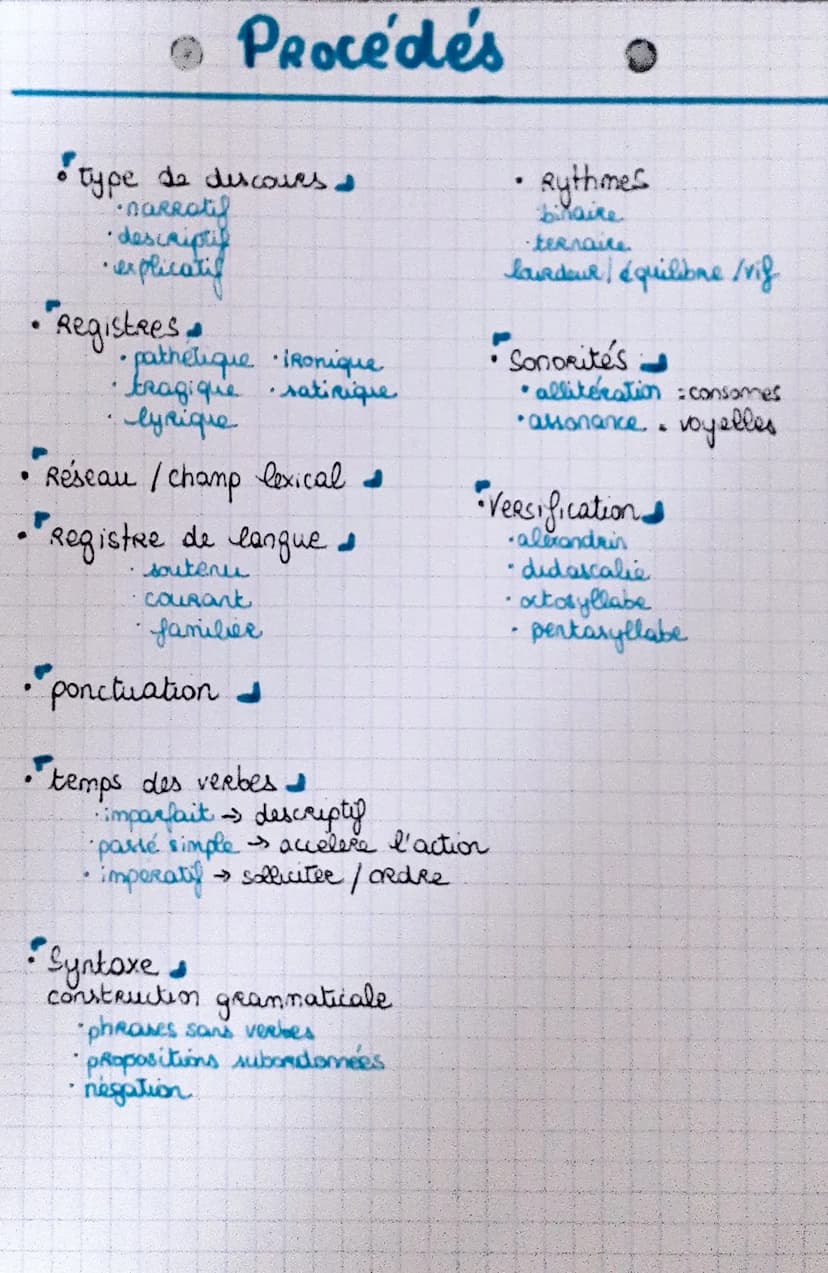 Procédés
• type de discours
• narratif
• descriptif
• explicatif
• Registres
• pathétique • ironique
• tragique • satirique
• lyrique
• Réseau / champ lexical
• Registre de langue
• soutenu
• courant
• familier
• ponctuation
• temps des verbes
• imparfait → descriptif
• passé simple → accélère l'action
• imperatif → solliciter / ordre
• Syntaxe
construction grammaticale
• phrases sans verbes
• propositions subordonnées
• négation
• Rythmes
binaire
• ternaire
lourdeur / équilibre / vif
• Sonorités
• allitération : consonnes
• assonance : voyelles
• Versification
• alexandrin
• didascalie
• octosyllabe
• pentasyllabe